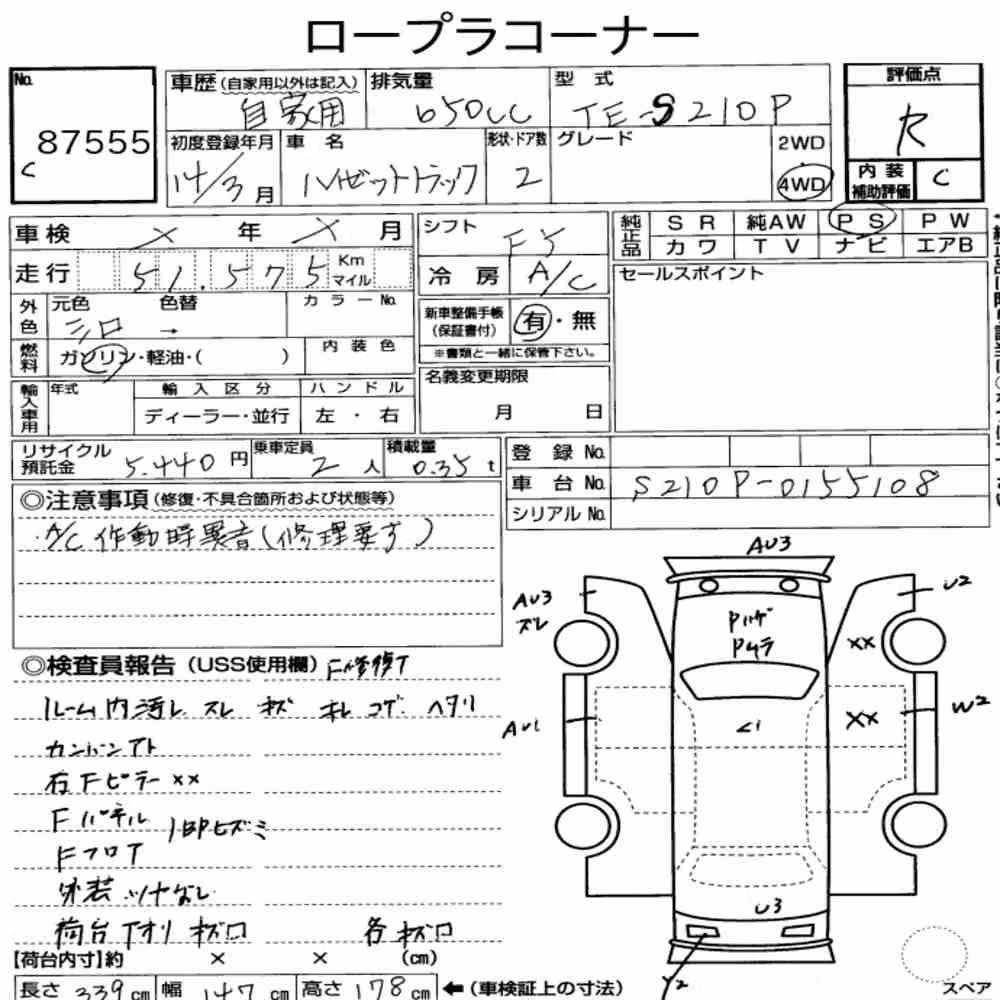 ロープラコーナー
No.
87555
C
車歴(自家用以外は記入)
自家用
排気量
650cc
型式
TE-S210P
評価点
R
初度登録年月
14/3月
車名
ハイゼットトラック
形状・ドア数
2
グレード
2WD
4WD
内装
補助評価
C
車検 × 年 × 月
シフト
F5
純正品
SR 純AW PS PW
カワ TV ナビ エアB
走行 51.575 Km マイル
冷房 A/C
セールスポイント
外色
元色 色替
シロ →
カラーNo.
新車整備手帳
(保証書付)
有・無
※書類と一緒に保管下さい。
燃料
ガソリン・軽油・( )
内装色
名義変更期限
月 日
輸入車用
年式
輸入区分
ディーラー・並行
ハンドル
左・右
リサイクル
預託金
5.440円
乗車定員
2人
積載量
0.35t
登録No.
車台No. S210P-0155108
シリアルNo.
◎注意事項(修復・不具合箇所および状態等)
A/C作動時異音(修理要す)
◎検査員報告(USS使用欄) F修復了
ルーム内汚レ スレ キズ キレ コゲ ヘタリ
カンバンアト
右Fピラー××
Fパネル
Fフロア
1部ヒズミ
外装ツヤなし
荷台下オリ キズ□ 各キズ□
【荷台内寸】約 × × (cm)
長さ 339cm 幅 147cm 高さ 178cm ←(車検証上の寸法)
AU3
AU3
スレ
U2
Pハゲ
Pムラ
××
AU1
××
W2
U3
Y2
スペア